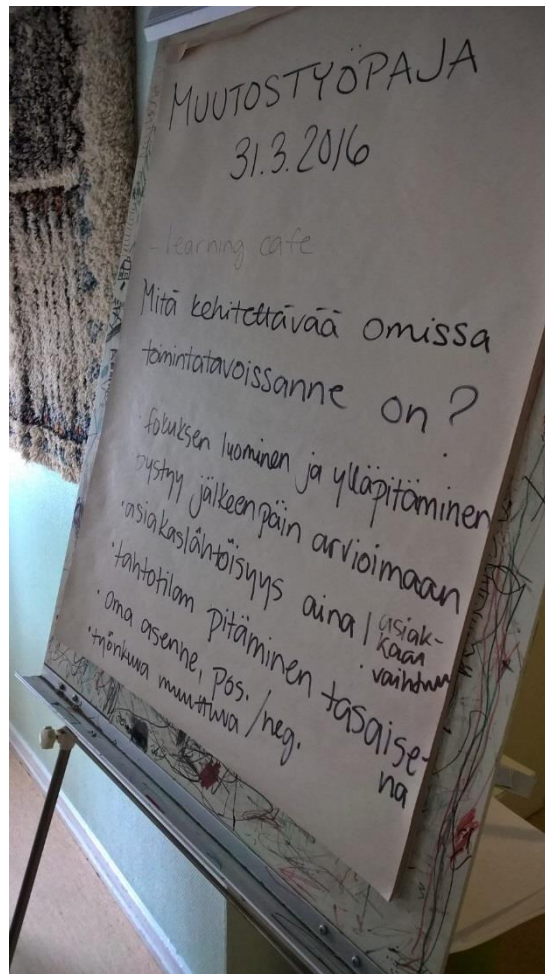 MUUTOSTYÖPAJA
31.3.2016
- learning cafe
Mitä kehitettävää omissa
toimintatavoissanne on?
· fokuksen luominen ja ylläpitäminen
· pystyy jälkeenpäin arvioimaan
· asiakaslähtöisyys aina / asiak-
kaan
vaihtuu
· tahtotilan pitäminen tasaise-
na
· oma asenne, pos. / neg.
· työnkuva muuttuva